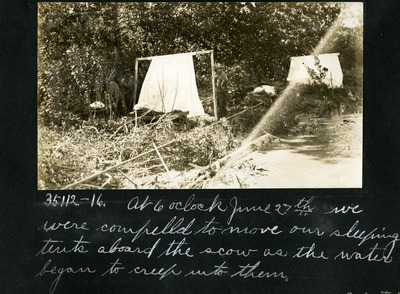 35112-16. At 6 oclock June 27th we
were compelld to move our sleeping
tents aboard the scow as the water
began to creep into them,